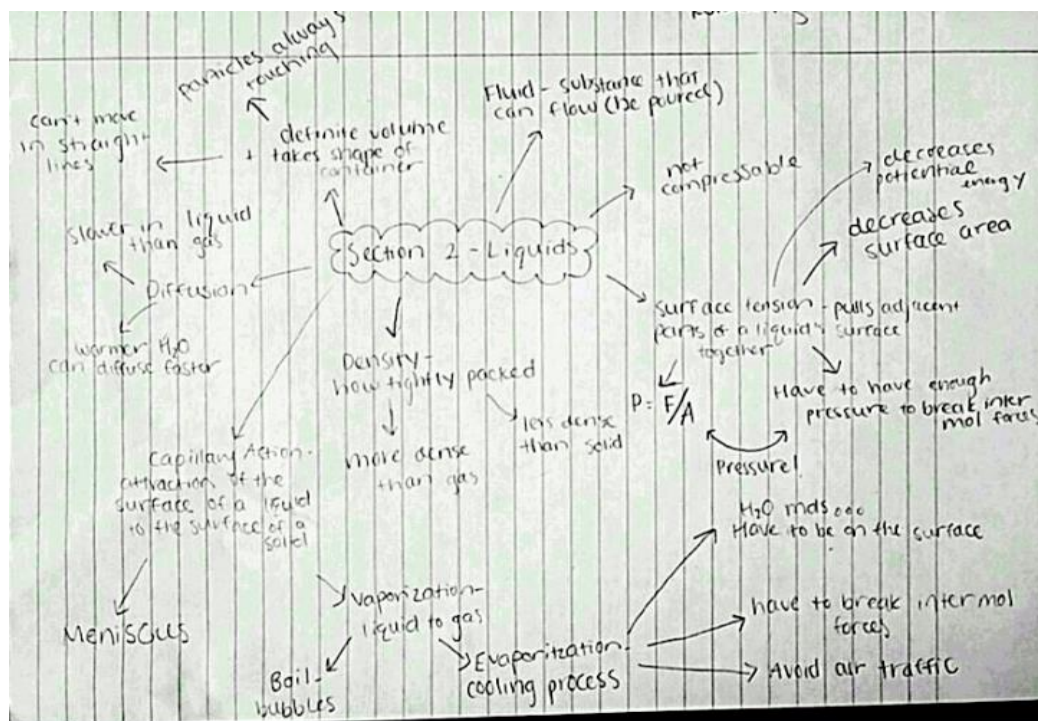 particles always
touching
can't move
in straight
lines
definite volume
+ takes shape of
container
Fluid - substance that
can flow (be poured)
not
compressable
decreases
potiential
energy
decreases
surface area
Section 2 - Liquids
slower in liquid
than gas
Diffusion
warmer H₂O
can diffuse faster
Surface tension - pulls adjacent
parts of a liquid's surface
together
P = F/A
Have to have enough
pressure to break inter
mol forces
Pressure!
Density -
how tightly packed
less dense
than solid
more dense
than gas
Capillary Action -
attraction of the
surface of a liquid
to the surface of a
solid
Meniscus
Vaporization -
liquid to gas
Boil -
bubbles
Evaporitzation -
cooling process
H₂O
Have to be on the surface
have to break intermol
forces
Avoid air traffic